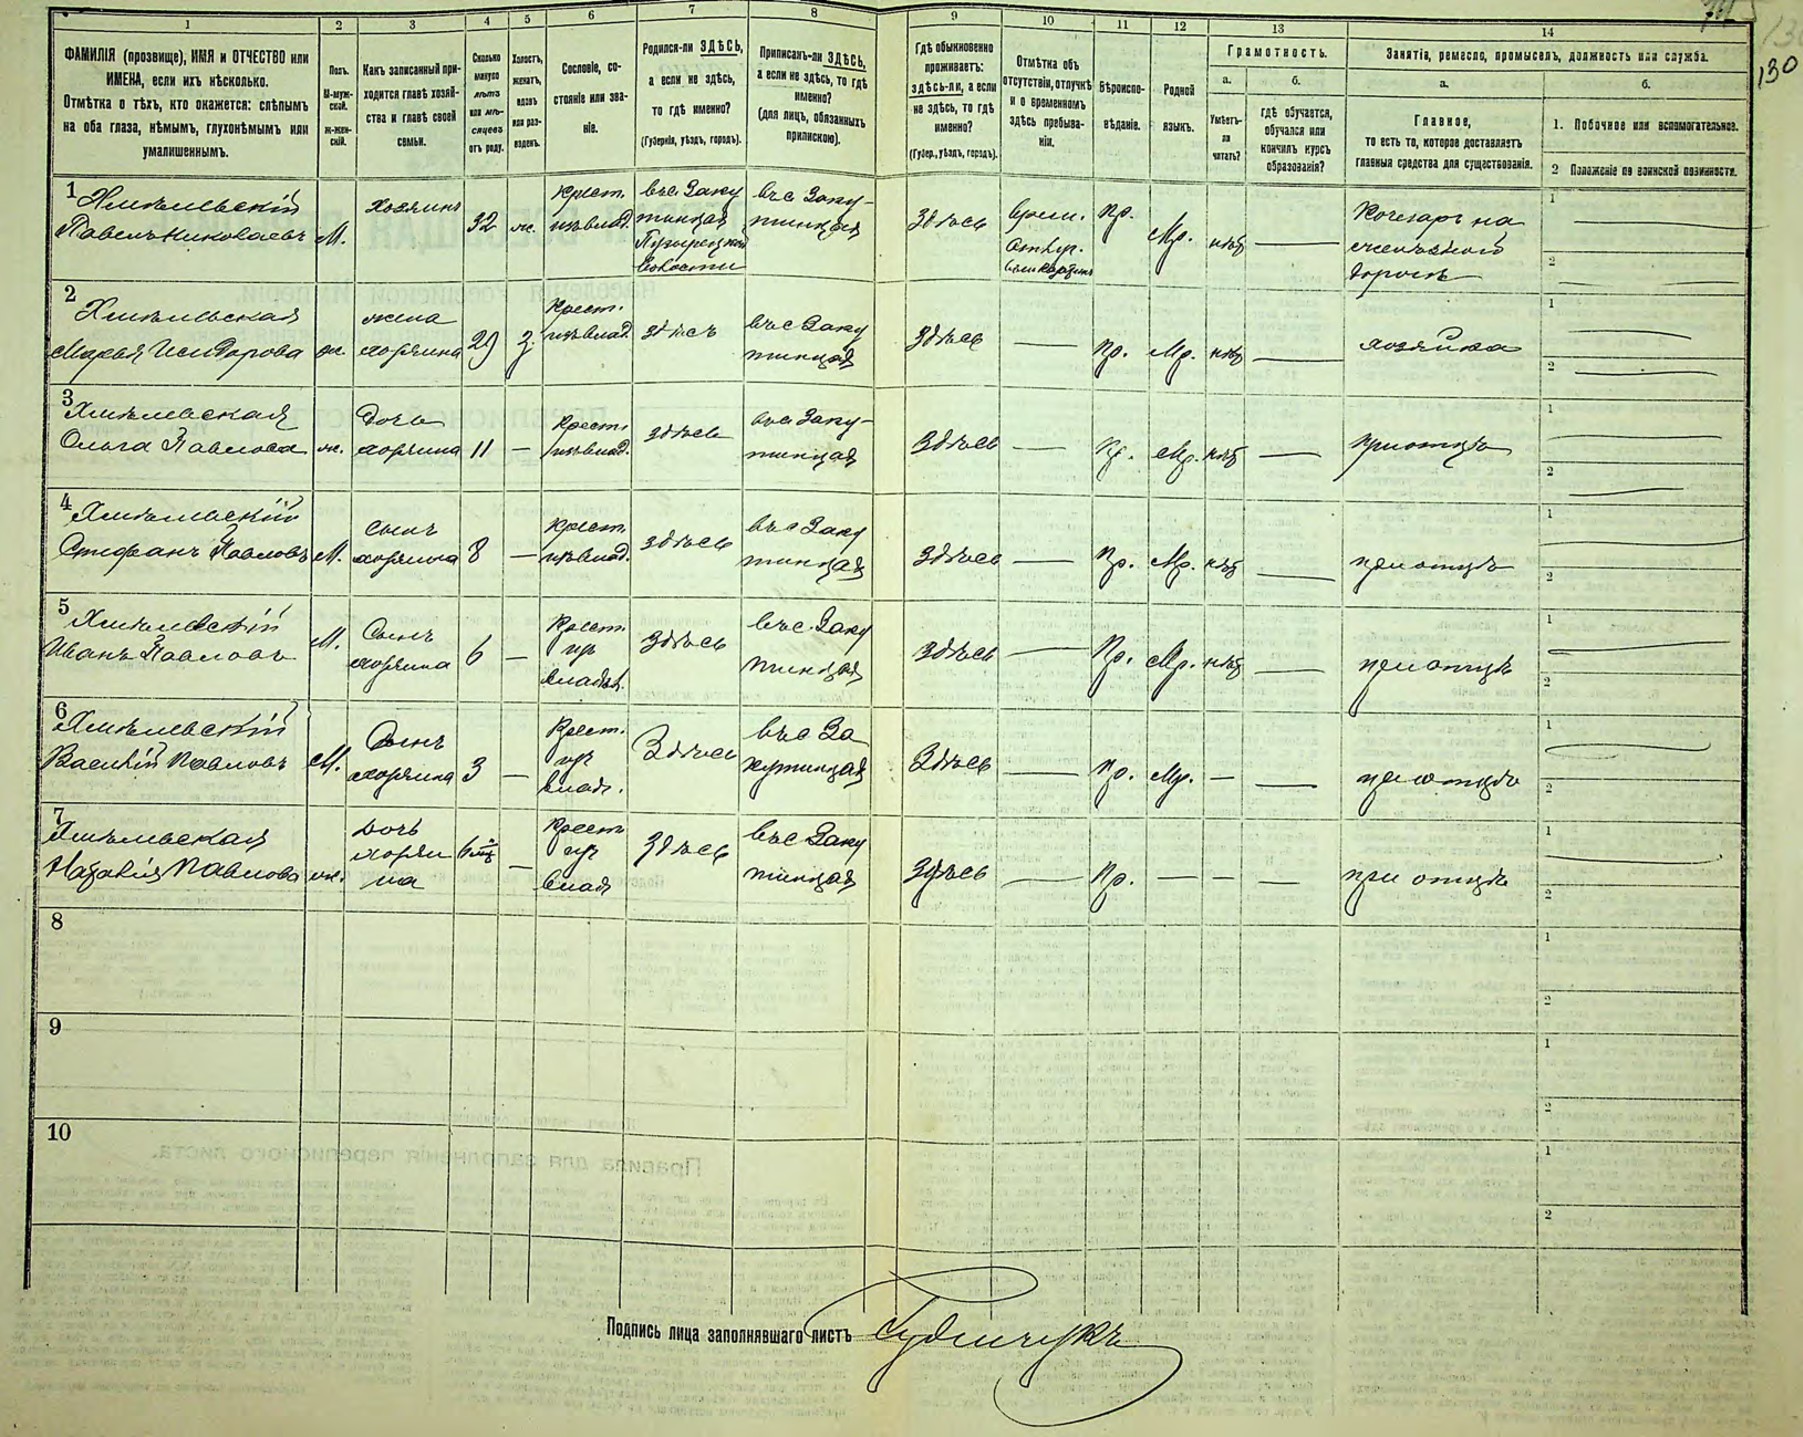 130
1 2 3 4 5 6 7 8 9 10 11 12 13 14
ФАМИЛІЯ (прозвище), ИМЯ и ОТЧЕСТВО или
ИМЕНА, если ихъ нѣсколько.
Отмѣтка о тѣхъ, кто окажется: слѣпымъ
на оба глаза, нѣмымъ, глухонѣмымъ или
умалишеннымъ.
Полъ.
М-муж-
ской.
ж-жен-
скій.
Какъ записанный при-
ходится главѣ хозяй-
ства и главѣ своей
семьи.
Сколько
минуло
лѣтъ
или мѣ-
сяцевъ
отъ роду.
Холостъ,
женатъ,
вдовъ
или раз-
веденъ.
Сословіе, со-
стояніе или зва-
ніе.
Родился-ли ЗДѢСЬ,
а если не здѣсь,
то гдѣ именно?
(Губернія, уѣздъ, городъ).
Приписанъ-ли ЗДѢСЬ,
а если не здѣсь, то гдѣ
именно?
(для лицъ, обязанныхъ
припискою).
Гдѣ обыкновенно
проживаетъ:
здѣсь-ли, а если
не здѣсь, то гдѣ
именно?
(Губер., уѣздъ, городъ).
Отмѣтка объ
отсутствіи, отлучкѣ
и о временномъ
здѣсь пребыва-
ніи.
Вѣроиспо-
вѣданіе.
Родной
языкъ.
Грамотность.
а.
Умѣетъ-
ли
читать?
б.
гдѣ обучается,
обучался или
кончилъ курсъ
образованія?
Занятія, ремесло, промыселъ, должность или служба.
а.
Главное,
то есть то, которое доставляетъ
главныя средства для существованія.
б.
1. Побочное или вспомогательное.
2 Положеніе по воинской повинности.
1 Хмѣльевскій
Павелъ Николаевъ М. хозяинъ 32 ж. крест. изъ влад. въ с. Заку
тинцах
Волости
въ с Заку-
тинцах здѣсь врем. отлуч. Пр. Мр. нѣт — Кочегаръ на
желѣзной
дорогѣ
2 Хмѣльевская
Марья Исидорова ж. жена хозяина 29 З. Крест. изъ влад. здѣсь въ с Заку
тинцах здѣсь — Пр. Мр. нѣт — хозяйка
3 Хмѣльевская
Ольга Павлова ж. дочь хозяина 11 — Крест. изъ влад. здѣсь въ с Заку-
тинцах здѣсь — Пр. Мр. нѣт — при отцѣ
4 Хмѣльевскій
Стефанъ Павловъ М. сынъ хозяина 8 — крест. изъ влад. здѣсь въ с Заку
тинцах здѣсь — Пр. Мр. нѣт — при отцѣ
5 Хмѣлевскій
Иванъ Павловъ М. Сынъ хозяина 6 — Крест. изъ владѣл. здѣсь въ с. Заку
тинцах здѣсь — Пр. Мр. нѣт — при отцѣ
6 Хмѣлевскій
Василій Павловъ М. Сынъ хозяина 3 — Крест. изъ влад. Здѣсь въ с За
кутинцах Здѣсь — Пр. Мр. — — при отцѣ
7 Хмѣльевская
Наталія Павлова ж. дочь хозяи
на 6 — Крест изъ влад здѣсь въ с Заку
тинцах здѣсь — Пр. — — — при отцѣ
8
9
10
Подпись лица заполнявшаго листъ